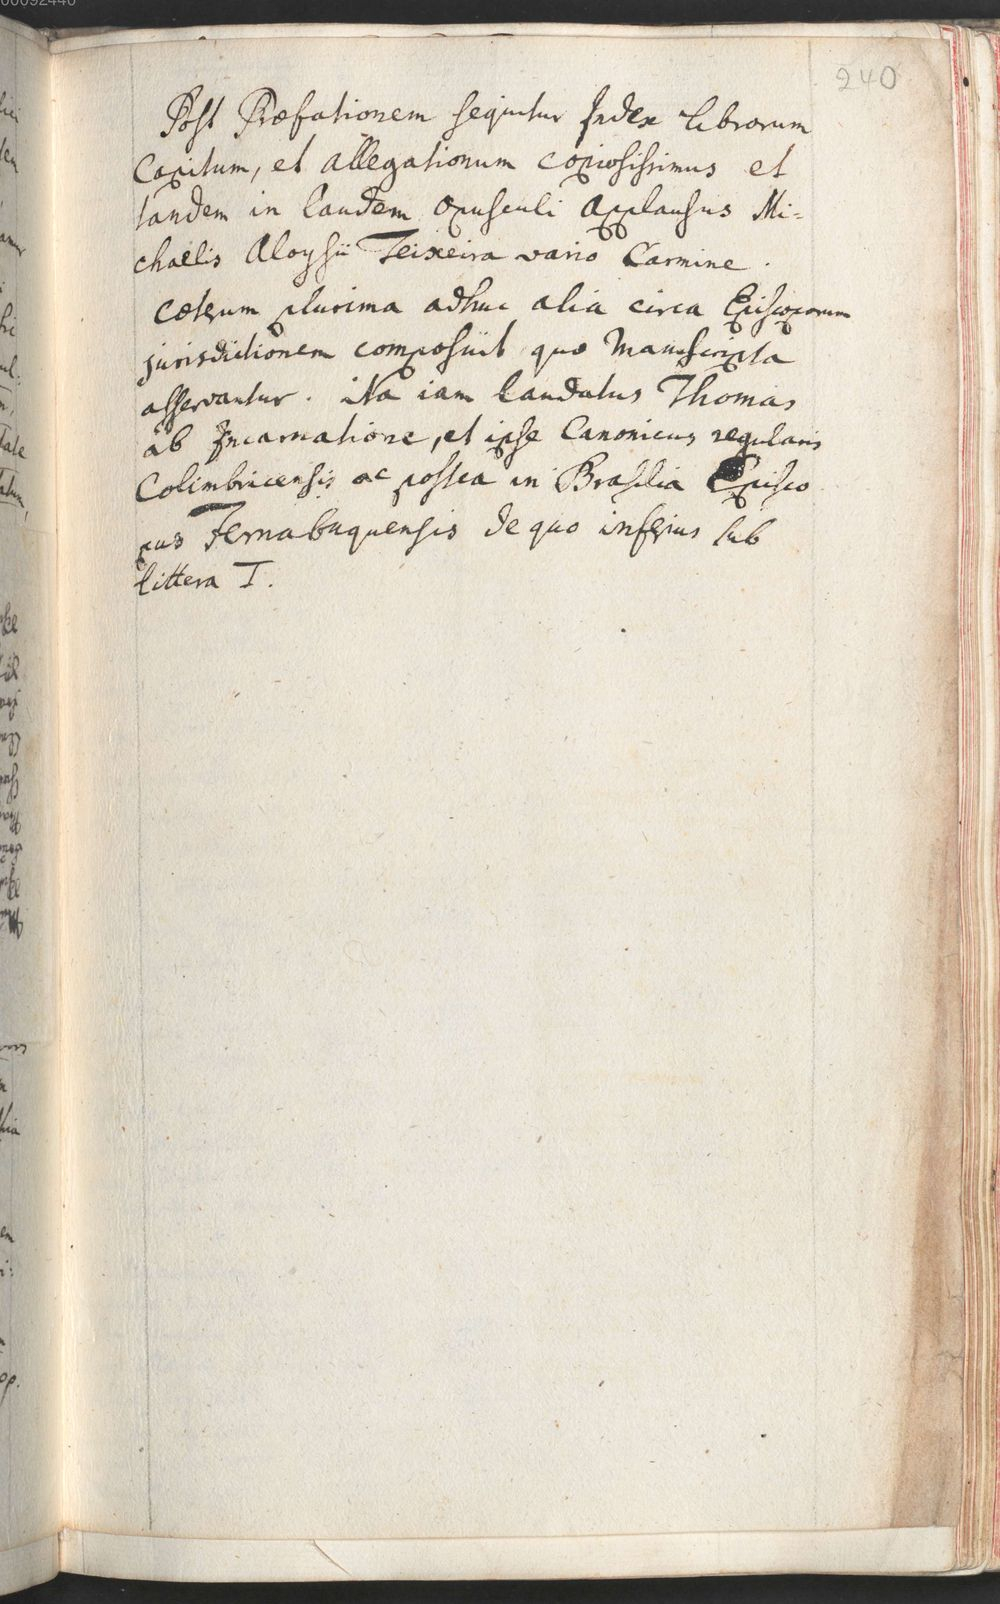 240
Post Præfationem sequitur Index librorum
Capitum, et allegationum copiosissimus et
tandem in laudem opusculi applausus Mi=
chaelis Aloysii Teixeira vario Carmine.
Cæterum plurima adhuc alia circa Episcoporum
jurisdictionem composuit quæ manuscripta
asservantur. Ita iam laudatus Thomas
ab Incarnatione, et ipse Canonicus regularis
Colimbricensis ac postea in Brasilia Episco
pus Fernabuquensis de quo inferius sub
littera T.